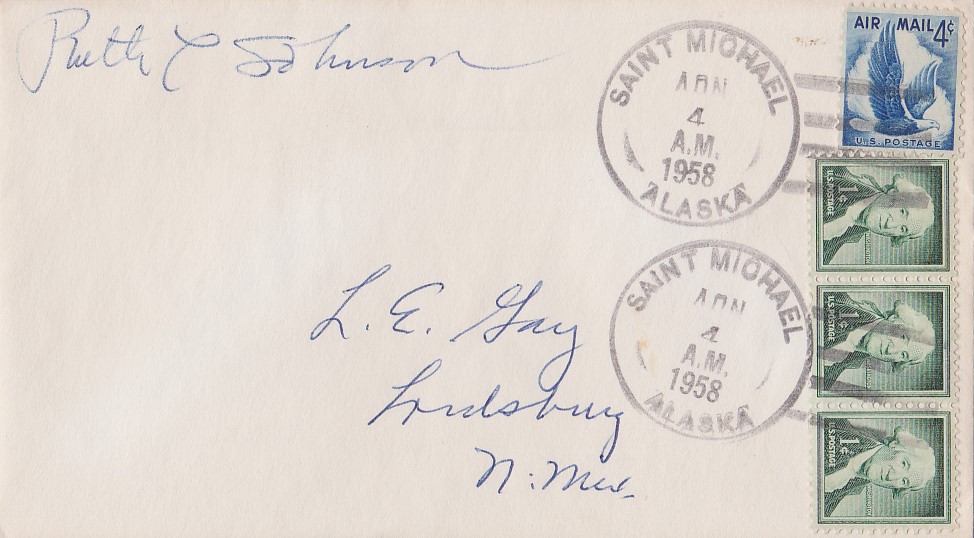 Ruth L Johnson
SAINT MICHAEL
4
A.M.
1958
ALASKA
AIR MAIL 4¢
U.S. POSTAGE
1¢
U.S. POSTAGE
SAINT MICHAEL
4
A.M.
1958
ALASKA
1¢
U.S. POSTAGE
1¢
U.S. POSTAGE
L. E. Gay
Lordsburg
N. Mex.